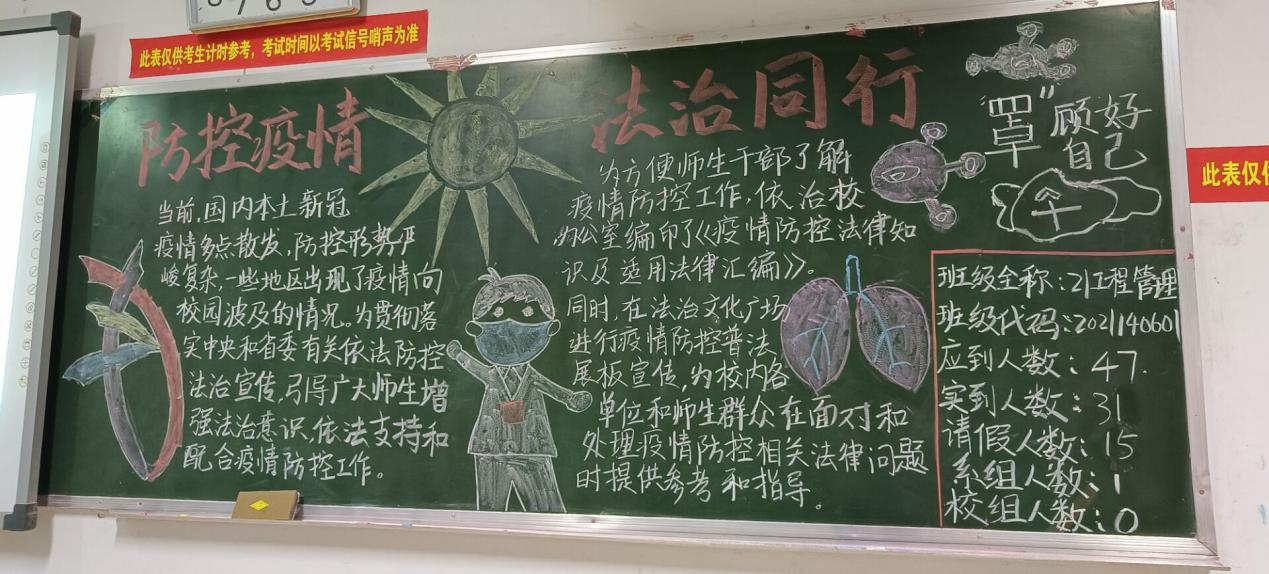 此表仅供考生计时参考，考试时间以考试信号哨声为准
防控疫情
法治同行
当前，国内本土新冠
疫情多点散发，防控形势严
峻复杂，一些地区出现了疫情向
校园波及的情况。为贯彻落
实中央和省委有关依法防控
法治宣传，引导广大师生增
强法治意识，依法支持和
配合疫情防控工作。
为方便师生干部了解
疫情防控工作，依治校
办公室编印了《疫情防控法律知
识及适用法律汇编》。
同时，在法治文化广场
进行疫情防控普法
展板宣传，为校内各
单位和师生群众在面对和
处理疫情防控相关法律问题
时提供参考和指导。
“罩”顾好
自己
班级全称：21工程管理
班级代码：2021140601
应到人数：47.
实到人数：31
请假人数：15
系组人数：1
校组人数：0
此表仅供